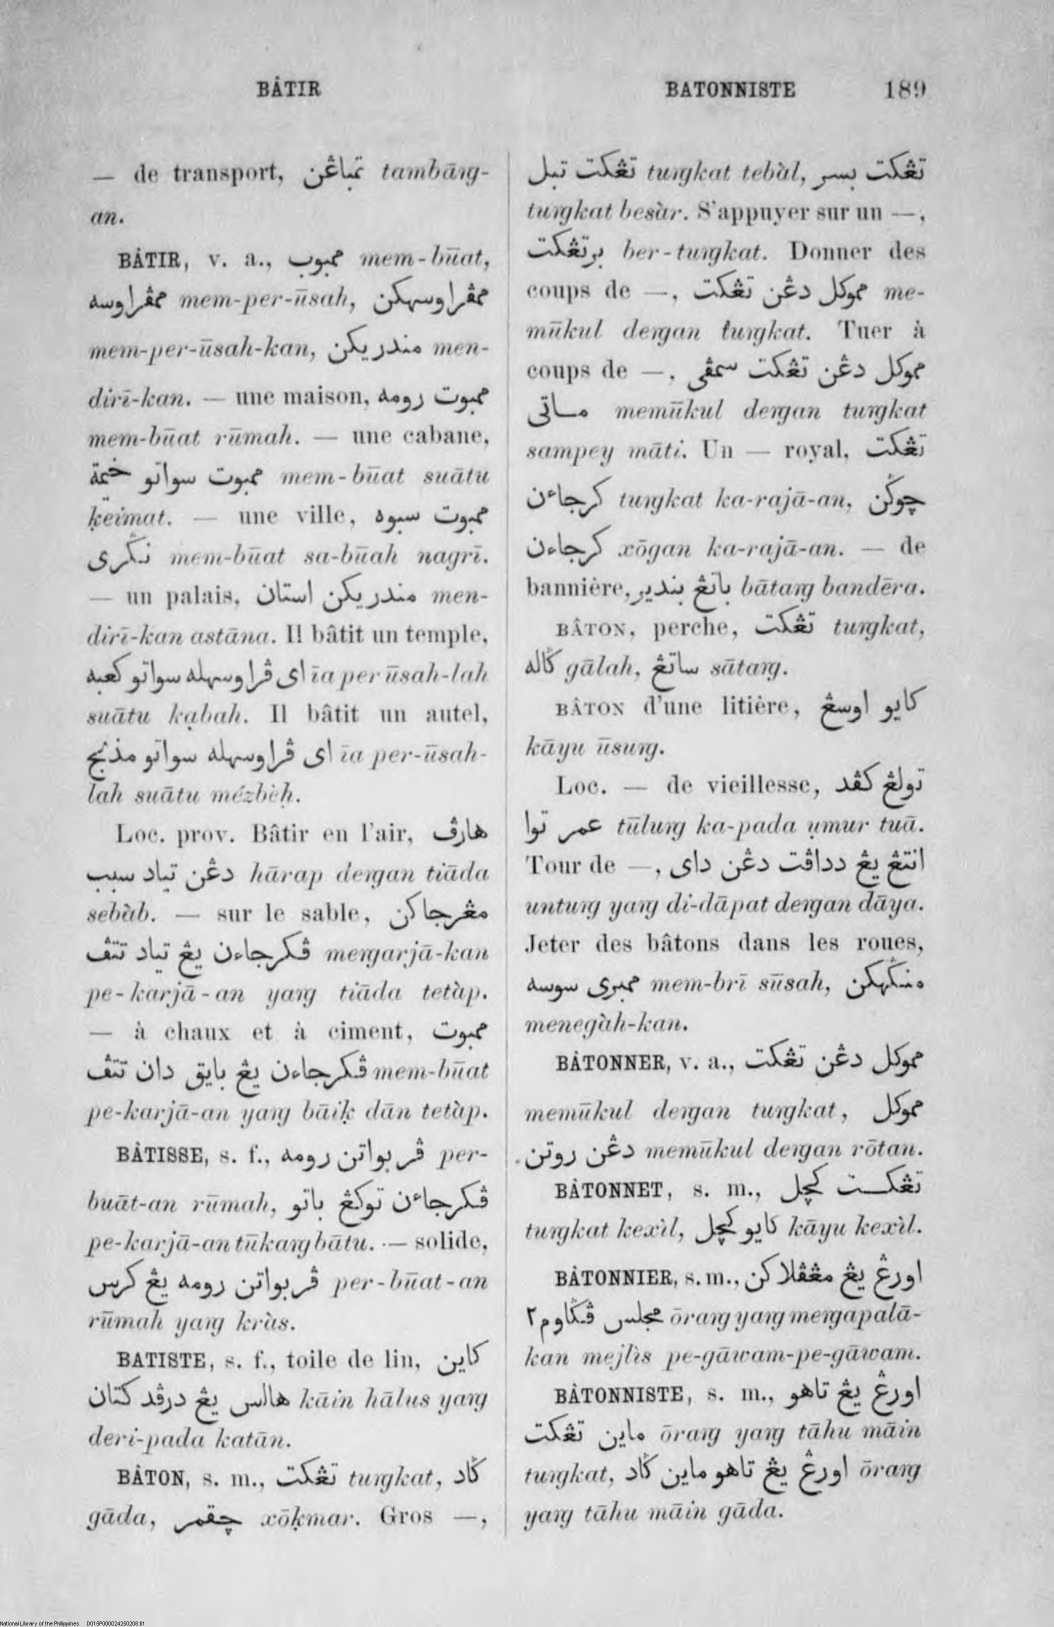 BÂTIR
BATONNISTE 189
— de transport, تمباڠن tambāng-
an.
BÂTIR, v. a., ممبوب mem-būat,
ممڤراوسه mem-per-ūsah, ممڤراوسهکن
mem-per-ūsah-kan, مندريکن men-
dirī-kan. — une maison, ممبوت رومه
mem-būat rūmah. — une cabane,
ممبوت سواتو خيمة mem-būat suātu
ḳeimat. — une ville, ممبوت سبوه
نݢري mem-būat sa-būah nagrī.
— un palais, مندريکن استان men-
dirī-kan astāna. Il bâtit un temple,
اي ڤراوسهله سواتو کعبه īa per ūsah-lah
suātu kạbah. Il bâtit un autel,
اي ڤراوسهله سواتو مذبح īa per-ūsah-
lah suātu mézbèḥ.
Loc. prov. Bâtir en l'air, هارڤ
دڠن تياد سبب hārap dengan tiāda
sebàb. — sur le sable, مڠرجاکن
ڤکرجاءن يڠ تياد تتڤ mengarjā-kan
pe-karjā-an yang tiāda tetàp.
— à chaux et à ciment, ممبوت
ڤکرجاءن يڠ بايق دان تتڤ mem-būat
pe-karjā-an yang bāiḳ dān tetàp.
BÂTISSE, s. f., ڤربواتن رومه per-
buāt-an rūmah, ڤکرجاءن توکڠ باتو
pe-karjā-an tūkang bātu. — solide,
ڤربواتن رومه يڠ کرس per-būat-an
rūmah yang kràs.
BATISTE, s. f., toile de lin, کاين
هالس يڠ درڤد کتان kāin hālus yang
deri-pada katān.
BÂTON, s. m., تڠکت tungkat, ݢاد
gāda, چقمر xōḳmar. Gros —,
تڠکت تبل tungkat tebàl, تڠکت بسر
tungkat besàr. S'appuyer sur un —,
برتڠکت ber-tungkat. Donner des
coups de —, مموکل دڠن تڠکت me-
mūkul dengan tungkat. Tuer à
coups de —, مموکل دڠن تڠکت سمڤي
ماتي memūkul dengan tungkat
sampey māti. Un — royal, تڠکت
کرجاءن tungkat ka-rajā-an, چوݢن
کرجاءن xōgan ka-rajā-an. — de
bannière, باتڠ بندير bātang bandēra.
BÂTON, perche, تڠکت tungkat,
ݢاله gālah, ساتڠ sātang.
BÂTON d'une litière, کايو اوسڠ
kāyu ūsung.
Loc. — de vieillesse, تولڠ کڤد
عمر توا tūlung ka-pada ụmur tuā.
Tour de —, انتڠ يڠ دداڤت دڠن داي
untung yang di-dāpat dengan dāya.
Jeter des bâtons dans les roues,
ممبري سوسه mem-brī sūsah, منݢهکن
menegàh-kan.
BÂTONNER, v. a., مموکل دڠن تڠکت
memūkul dengan tungkat, مموکل
دڠن روتن memūkul dengan rōtan.
BÂTONNET, s. m., تڠکت کچل
tungkat kexìl, کايو کچل kāyu kexìl.
BÂTONNIER, s. m., اورڠ يڠ مڠڤلاکن
مجلس ڤݢاوم٢ ōrang yang mengapalā-
kan mejlìs pe-gāwam-pe-gāwam.
BÂTONNISTE, s. m., اورڠ يڠ تاهو
ماين تڠکت ōrang yang tāhu māin
tungkat, اورڠ يڠ تاهو ماين ݢاد ōrang
yang tāhu māin gāda.
National Library of the Philippines